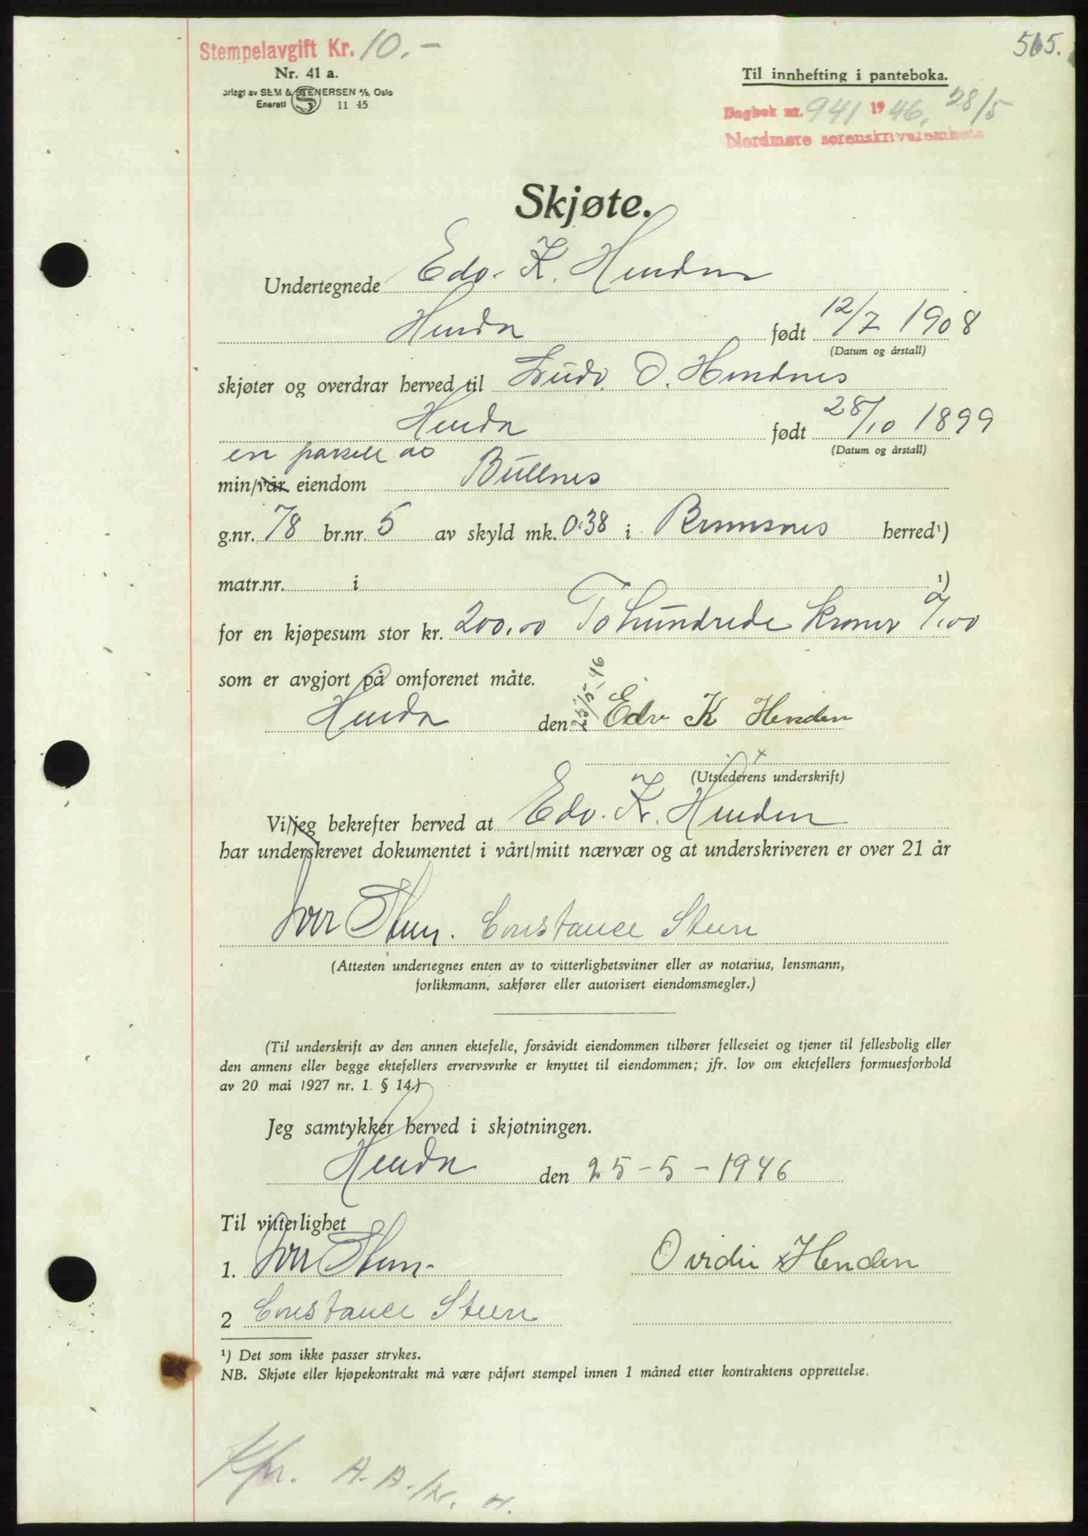 Stempelavgift Kr. 10.-
565.
Nr. 41 a.
Til innhefting i panteboka.
orlagt av SEM & STENERSEN A/S, Oslo
Enerett S 11 45
Dagbok nr. 941 1946, 28/5
Nordmøre sorenskriverembete
Skjøte.
Undertegnede Edv. K. Henden
Henda født 12/7 1908
(Datum og årstall)
skjøter og overdrar herved til Ludv. O. Hendnes
Henda født 28/10 1899
(Datum og årstall)
en parsell av
min/vår eiendom Bullnes
g.nr. 78 br.nr. 5 av skyld mk. 0.38 i Bremsnes herred¹)
matr.nr. i ¹)
for en kjøpesum stor kr. 200,00 To hundrede kroner 0/00
som er avgjort på omforenet måte.
Henda den 25/5-46 Edv K Henden
(Utstederens underskrift)
Vi/jeg bekrefter herved at Edv. K. Henden
har underskrevet dokumentet i vårt/mitt nærvær og at underskriveren er over 21 år
Iver Steen. Constance Steen
(Attesten undertegnes enten av to vitterlighetsvitner eller av notarius, lensmann,
forliksmann, sakfører eller autorisert eiendomsmegler.)
(Til underskrift av den annen ektefelle, forsåvidt eiendommen tilhører felleseiet og tjener til fellesbolig eller
den annens eller begge ektefellers ervervsvirke er knyttet til eiendommen; jfr. lov om ektefellers formuesforhold
av 20 mai 1927 nr. 1. § 14.)
Jeg samtykker herved i skjøtningen.
Henda den 25-5-1946
Til vitterlighet
1. Iver Steen. Ovidie Henden
2 Constance Steen
¹) Det som ikke passer strykes.
NB. Skjøte eller kjøpekontrakt må være påført stempel innen 1 måned etter kontraktens opprettelse.